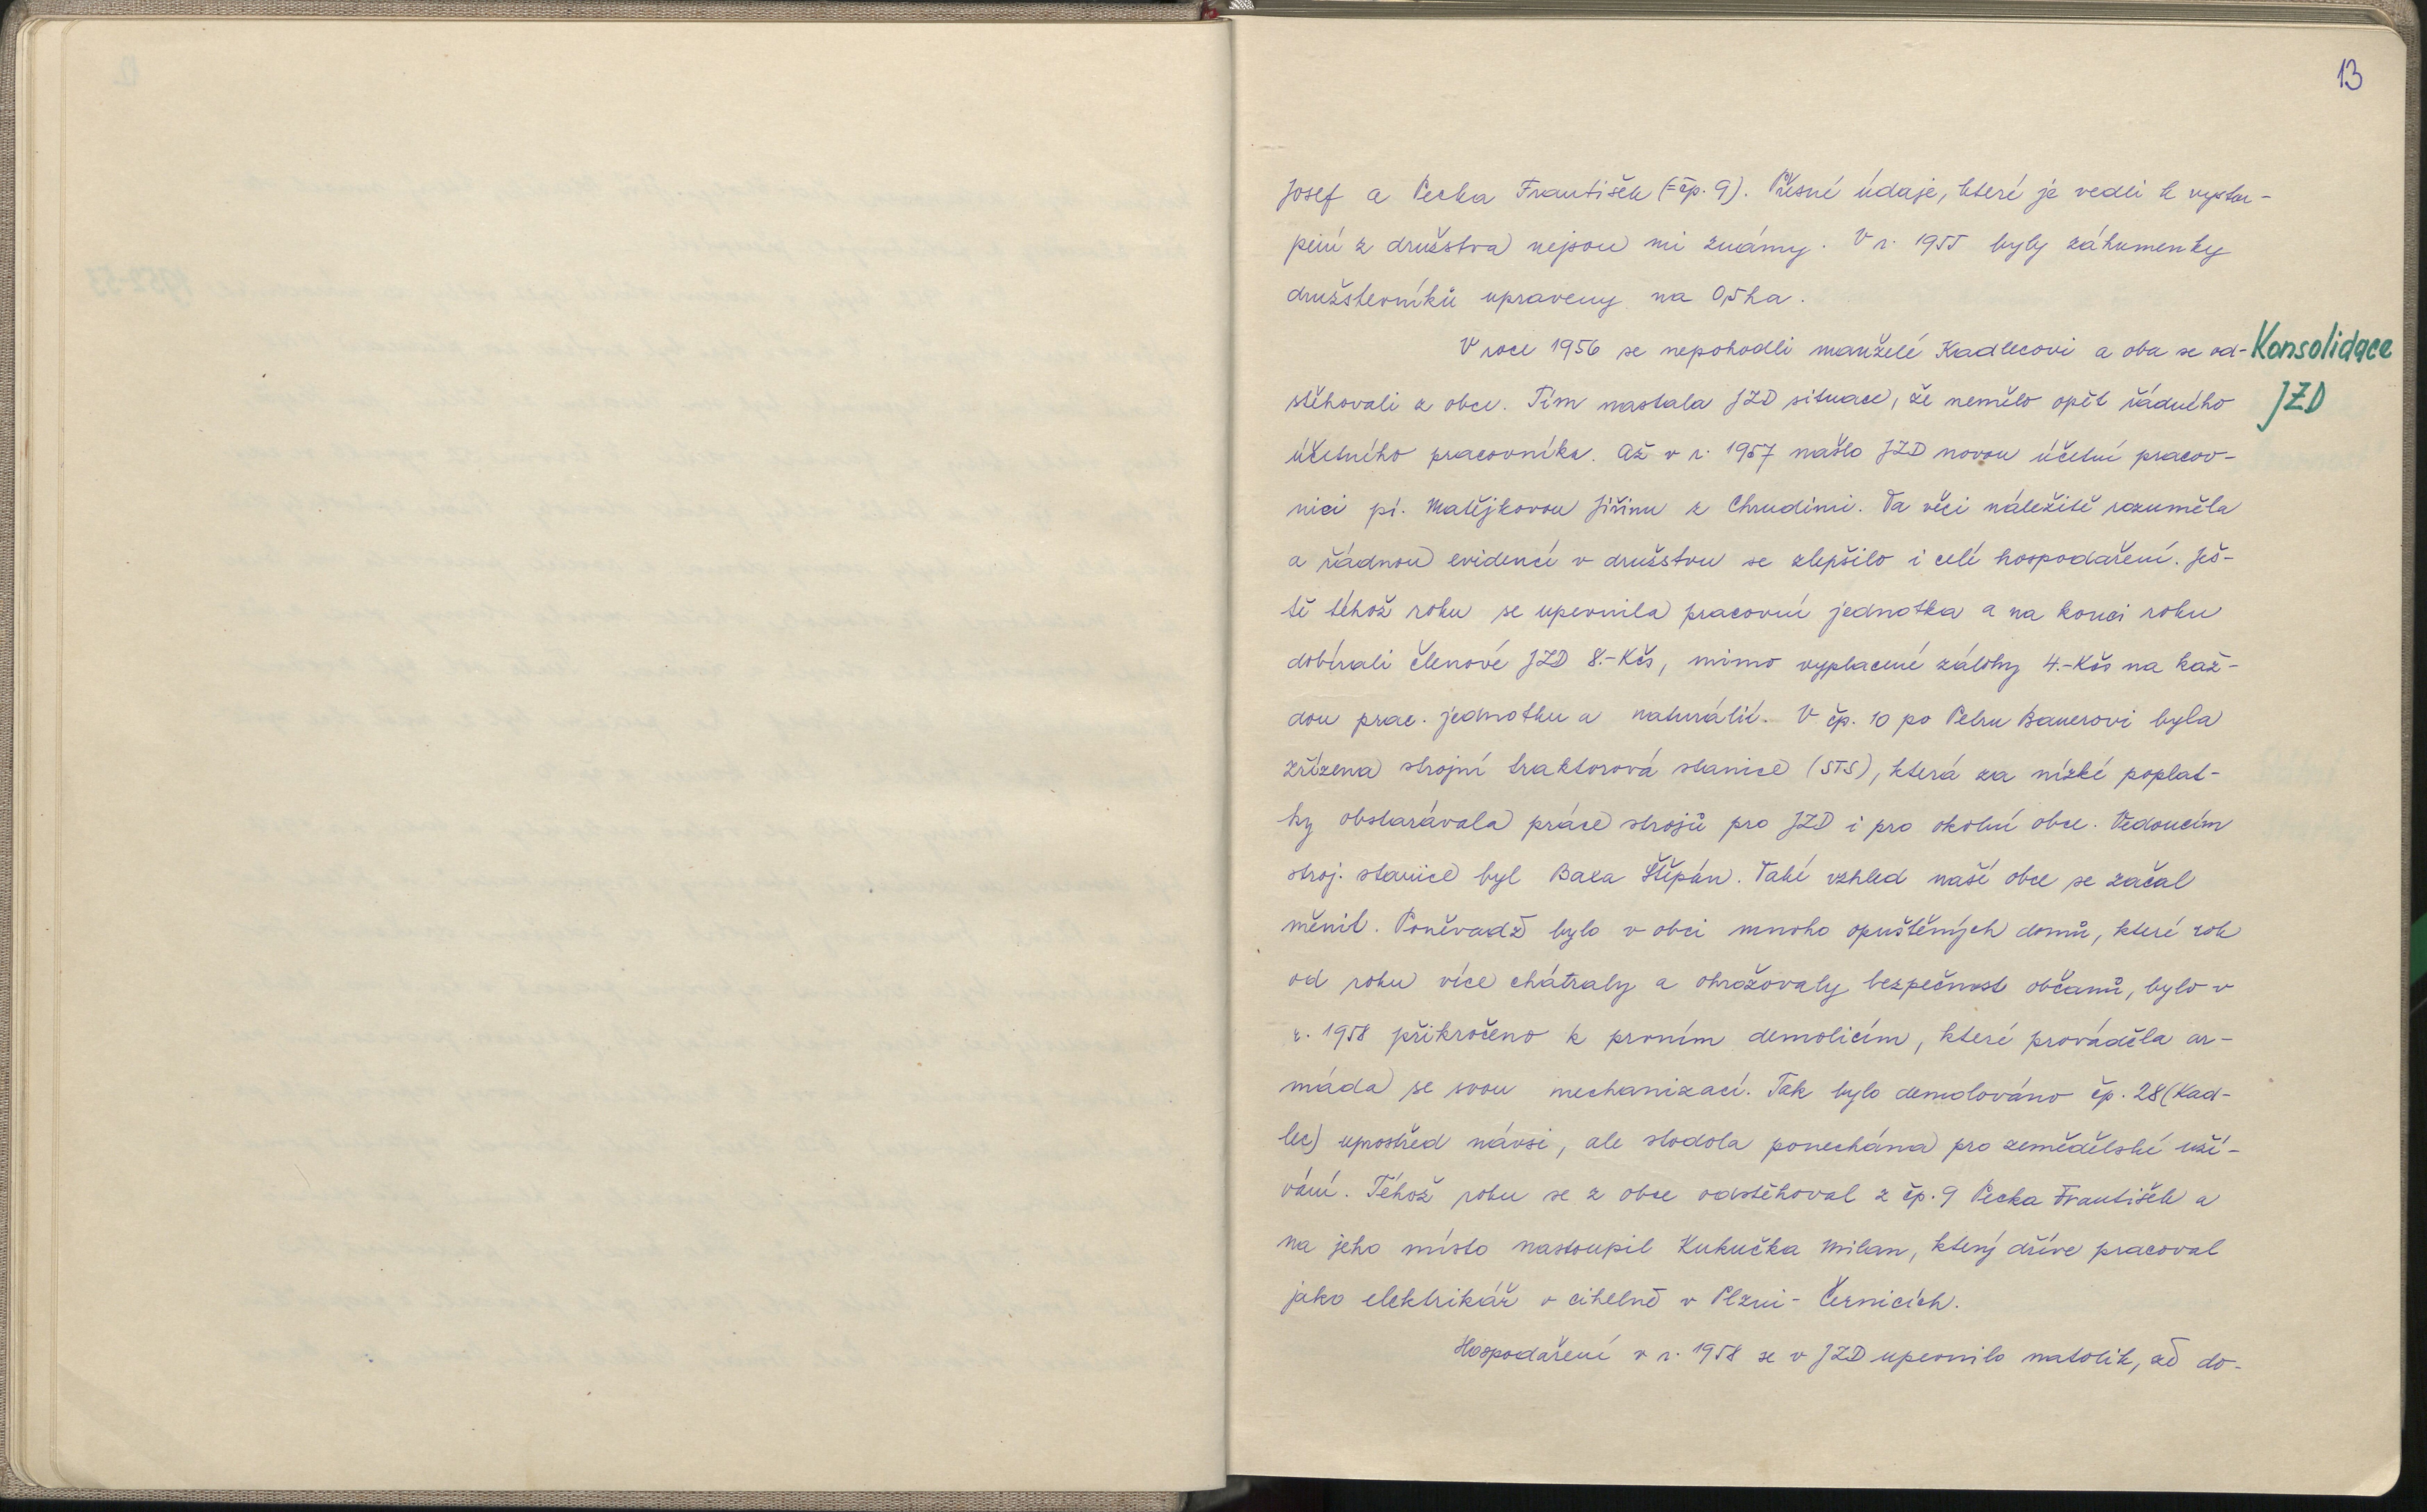 13
Josef a Pecka František (=čp. 9). Přesné údaje, které je vedli k vystou-
pení z družstva nejsou mi známy. V r. 1955 byly záhumenky
družstevníků upraveny na 0,5 ha.
V roce 1956 se nepohodli manželé Kadlecovi a oba se od-
Konsolidace
stěhovali z obce. Tím nastala JZD situace, že nemělo opět řádného
JZD
účetního pracovníka. Až v r. 1957 našlo JZD novou účetní pracov-
nici pí. Matějkovou Jiřinu z Chrudimi. Ta věci náležitě rozuměla
a řádnou evidencí v družstvu se zlepšilo i celé hospodaření. Ješ-
tě téhož roku se upevnila pracovní jednotka a na konci roku
dobírali členové JZD 8.- Kčs, mimo vyplacené zálohy 4.- Kčs na kaž-
dou prac. jednotku a naturálií. V čp. 10 po Petru Bauerovi byla
zřízena strojní traktorová stanice (STS), která za nízké poplat-
ky obstarávala práce strojů pro JZD i pro okolní obce. Vedoucím
stroj. stanice byl Baxa Štěpán. Také vzhled naší obce se začal
měnit. Poněvadž bylo v obci mnoho opuštěných domů, které rok
od roku více chátraly a ohrožovaly bezpečnost občanů, bylo v
r. 1958 přikročeno k prvním demolicím, které prováděla ar-
máda se svou mechanizací. Tak bylo demolováno čp. 28 (Kad-
lec) uprostřed návsi, ale stodola ponechána pro zemědělské uží-
vání. Téhož roku se z obce odstěhoval z čp. 9 Pecka František a
na jeho místo nastoupil Kukučka Milan, který dříve pracoval
jako elektrikář v cihelně v Plzni - Černicích.
Hospodaření v r. 1958 se v JZD upevnilo natolik, že do-